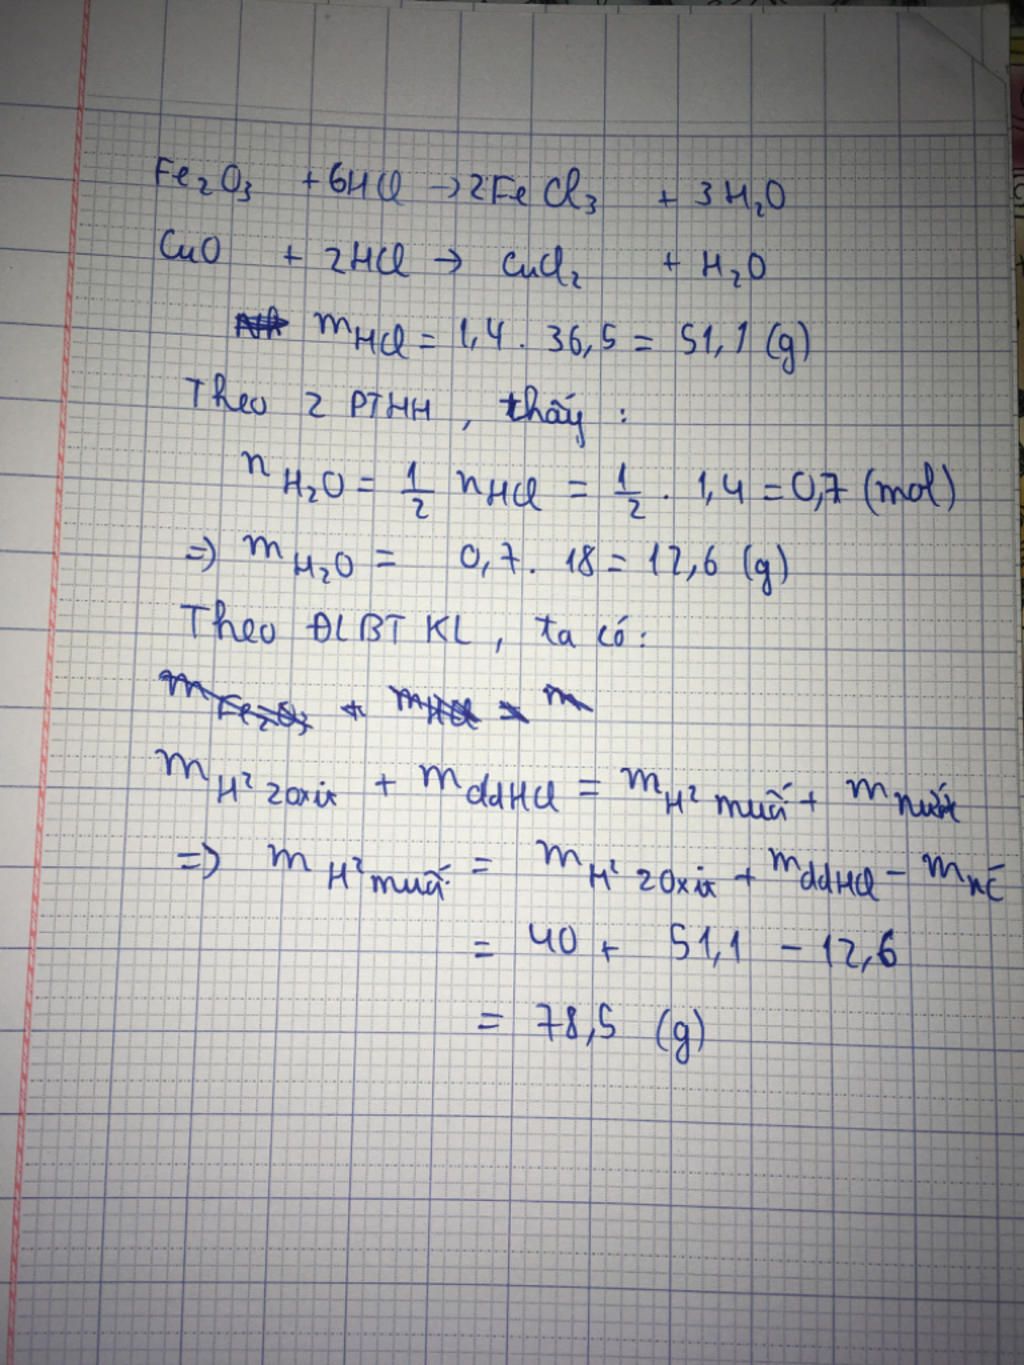 Fe₂O₃ + 6HCl → 2FeCl₃ + 3H₂O
CuO + 2HCl → CuCl₂ + H₂O
mHCl = 1,4 . 36,5 = 51,1 (g)
Theo 2 PTHH, thấy :
nH₂O = 1/2 nHCl = 1/2 . 1,4 = 0,7 (mol)
=> mH₂O = 0,7 . 18 = 12,6 (g)
Theo ĐLBT KL, ta có :
mFe₂O₃ + mHCl = m
mH² 2 oxit + mddHCl = mH² muối + mnước
=> mH² muối = mH² 2 oxit + mddHCl - mnc
= 40 + 51,1 - 12,6
= 78,5 (g)